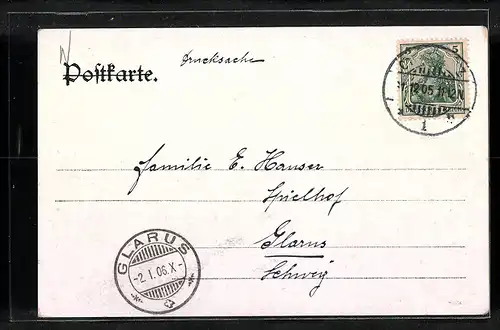 Drucksache
Postkarte.
5
12.05.11-12N
1
Familie E. Hauser
Spielhof
Glarus
Schweiz
GLARUS
-2.I.06.X-